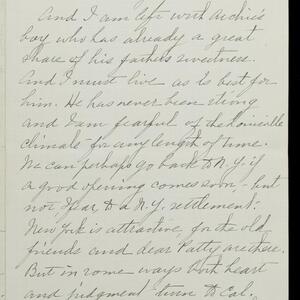 And I am left with Archie's
boy who has already a great
share of his father's sweetness.
And I must live as is best for
him. He has never been strong
and I am fearful of the Louisville
climate - for any length of time.
We can perhaps go back to N.Y. if
a good opening comes soon, - but
not I fear to a N.Y. settlement.
New York is attractive, for the old
friends and dear Patty are there.
But in some ways both heart
and judgment turn to Cal.